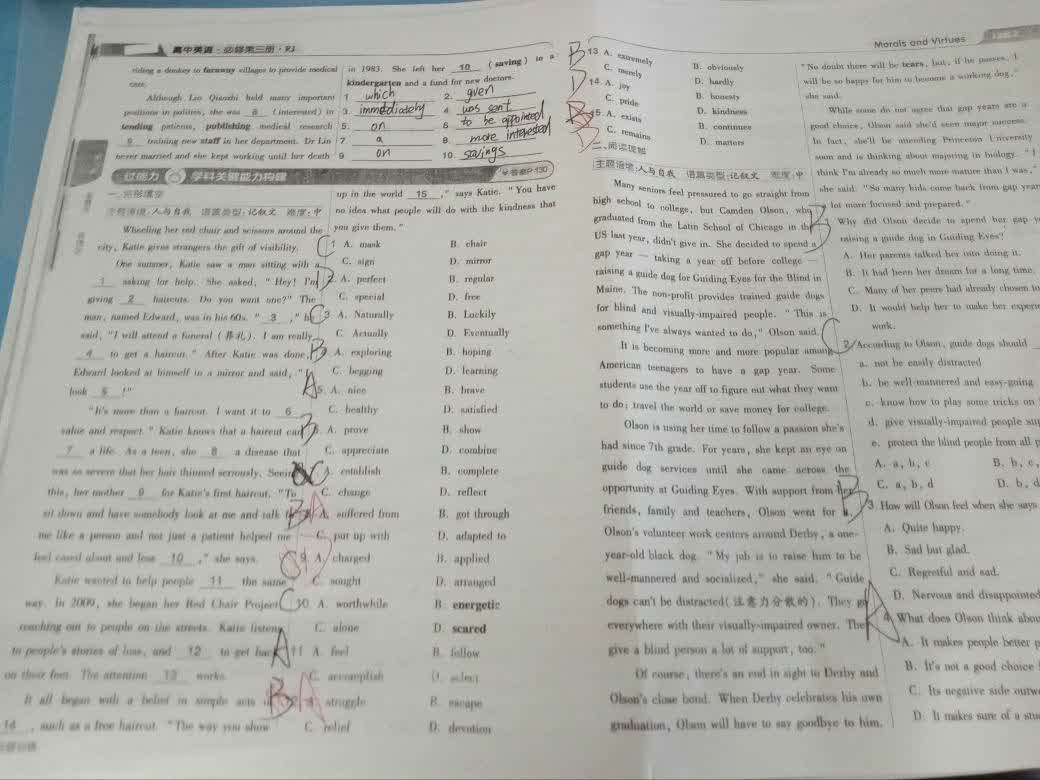 高中英语·必修第三册·RJ
riding a donkey to faraway villages to provide medical
care.
Although Lin Qiaozhi held many important
positions in politics, she was 8 (interested) in
tending patients, publishing medical research
9 training new staff in her department. Dr Lin
never married and she kept working until her death
in 1983. She left her 10 (saving) to a
kindergarten and a fund for new doctors.
1. which 2. given
3. immediately 4. was sent
5. on 6. to be appointed
7. a 8. more interested
9. on 10. savings
答案P130
过能力 学科关键能力构建
一、完形填空
主题语境:人与自我 语篇类型:记叙文 难度:中
Wheeling her red chair and scissors around the
city, Katie gives strangers the gift of visibility.
One summer, Katie saw a man sitting with a
1 asking for help. She asked, "Hey! I'm
giving 2 haircuts. Do you want one?" The
man, named Edward, was in his 60s. " 3 ," he
said, "I will attend a funeral (葬礼). I am really
4 to get a haircut." After Katie was done,
Edward looked at himself in a mirror and said, "I
look 5 !"
"It's more than a haircut. I want it to 6
value and respect." Katie knows that a haircut can
7 a life. As a teen, she 8 a disease that
was so severe that her hair thinned seriously. Seeing
this, her mother 9 for Katie's first haircut. "To
sit down and have somebody look at me and talk to
me like a person and not just a patient helped me
feel cared about and less 10 ," she says.
Katie wanted to help people 11 the same
way. In 2009, she began her Red Chair Project
reaching out to people on the streets. Katie listens
to people's stories of loss, and 12 to get back
on their feet. The attention 13 works.
It all began with a belief in simple acts of
14 , such as a free haircut. "The way you show
up in the world 15 ," says Katie. "You have
no idea what people will do with the kindness that
you give them."
C 1. A. mask B. chair
C. sign D. mirror
2. A. perfect B. regular
C. special D. free
C 3. A. Naturally B. Luckily
C. Actually D. Eventually
B 4. A. exploring B. hoping
C. begging D. learning
A 5. A. nice B. brave
C. healthy D. satisfied
B 6. A. prove B. show
C. appreciate D. combine
C A. establish B. complete
C. change D. reflect
B A A. suffered from B. got through
C. put up with D. adapted to
9. A. charged B. applied
C. sought D. arranged
C 10. A. worthwhile B. energetic
C. alone D. scared
A 11. A. feel B. follow
C. accomplish D. select
B A A. struggle B. escape
C. relief D. devotion
Morals and Virtues
B 13. A. extremely B. obviously
C. merely D. hardly
D 14. A. joy B. honesty
C. pride D. kindness
15. A. exists B. continues
C. remains D. matters
二、阅读理解
主题语境:人与自我 语篇类型:记叙文 难度:中
Many seniors feel pressured to go straight from
high school to college, but Camden Olson, who
graduated from the Latin School of Chicago in the
US last year, didn't give in. She decided to spend a
gap year — taking a year off before college —
raising a guide dog for Guiding Eyes for the Blind in
Maine. The non-profit provides trained guide dogs
for blind and visually-impaired people. "This is
something I've always wanted to do," Olson said.
It is becoming more and more popular among
American teenagers to have a gap year. Some
students use the year off to figure out what they want
to do; travel the world or save money for college.
Olson is using her time to follow a passion she's
had since 7th grade. For years, she kept an eye on
guide dog services until she came across the
opportunity at Guiding Eyes. With support from her
friends, family and teachers, Olson went for it.
Olson's volunteer work centers around Derby, a one-
year-old black dog. "My job is to raise him to be
well-mannered and socialized," she said. "Guide
dogs can't be distracted(注意力分散的). They go
everywhere with their visually-impaired owner. They
give a blind person a lot of support, too."
Of course, there's an end in sight to Derby and
Olson's close bond. When Derby celebrates his own
graduation, Olson will have to say goodbye to him.
"No doubt there will be tears, but, if he passes, I
will be so happy for him to become a working dog,"
she said.
While some do not agree that gap years are a
good choice, Olson said she'd seen major success.
In fact, she'll be attending Princeton University
soon and is thinking about majoring in biology. "I
think I'm already so much more mature than I was,"
she said. "So many kids come back from gap year
a lot more focused and prepared."
1. Why did Olson decide to spend her gap y
raising a guide dog in Guiding Eyes?
A. Her parents talked her into doing it.
B. It had been her dream for a long time.
C. Many of her peers had already chosen to
D. It would help her to make her experi
work.
C 2. According to Olson, guide dogs should
a. not be easily distracted
b. be well-mannered and easy-going
c. know how to play some tricks on
d. give visually-impaired people sup
e. protect the blind people from all p
A. a, b, c B. b, c,
C. a, b, d D. b, d
B 3. How will Olson feel when she says
A. Quite happy.
B. Sad but glad.
C. Regretful and sad.
D. Nervous and disappointed
A 4. What does Olson think abou
A. It makes people better p
B. It's not a good choice
C. Its negative side outw
D. It makes sure of a stu